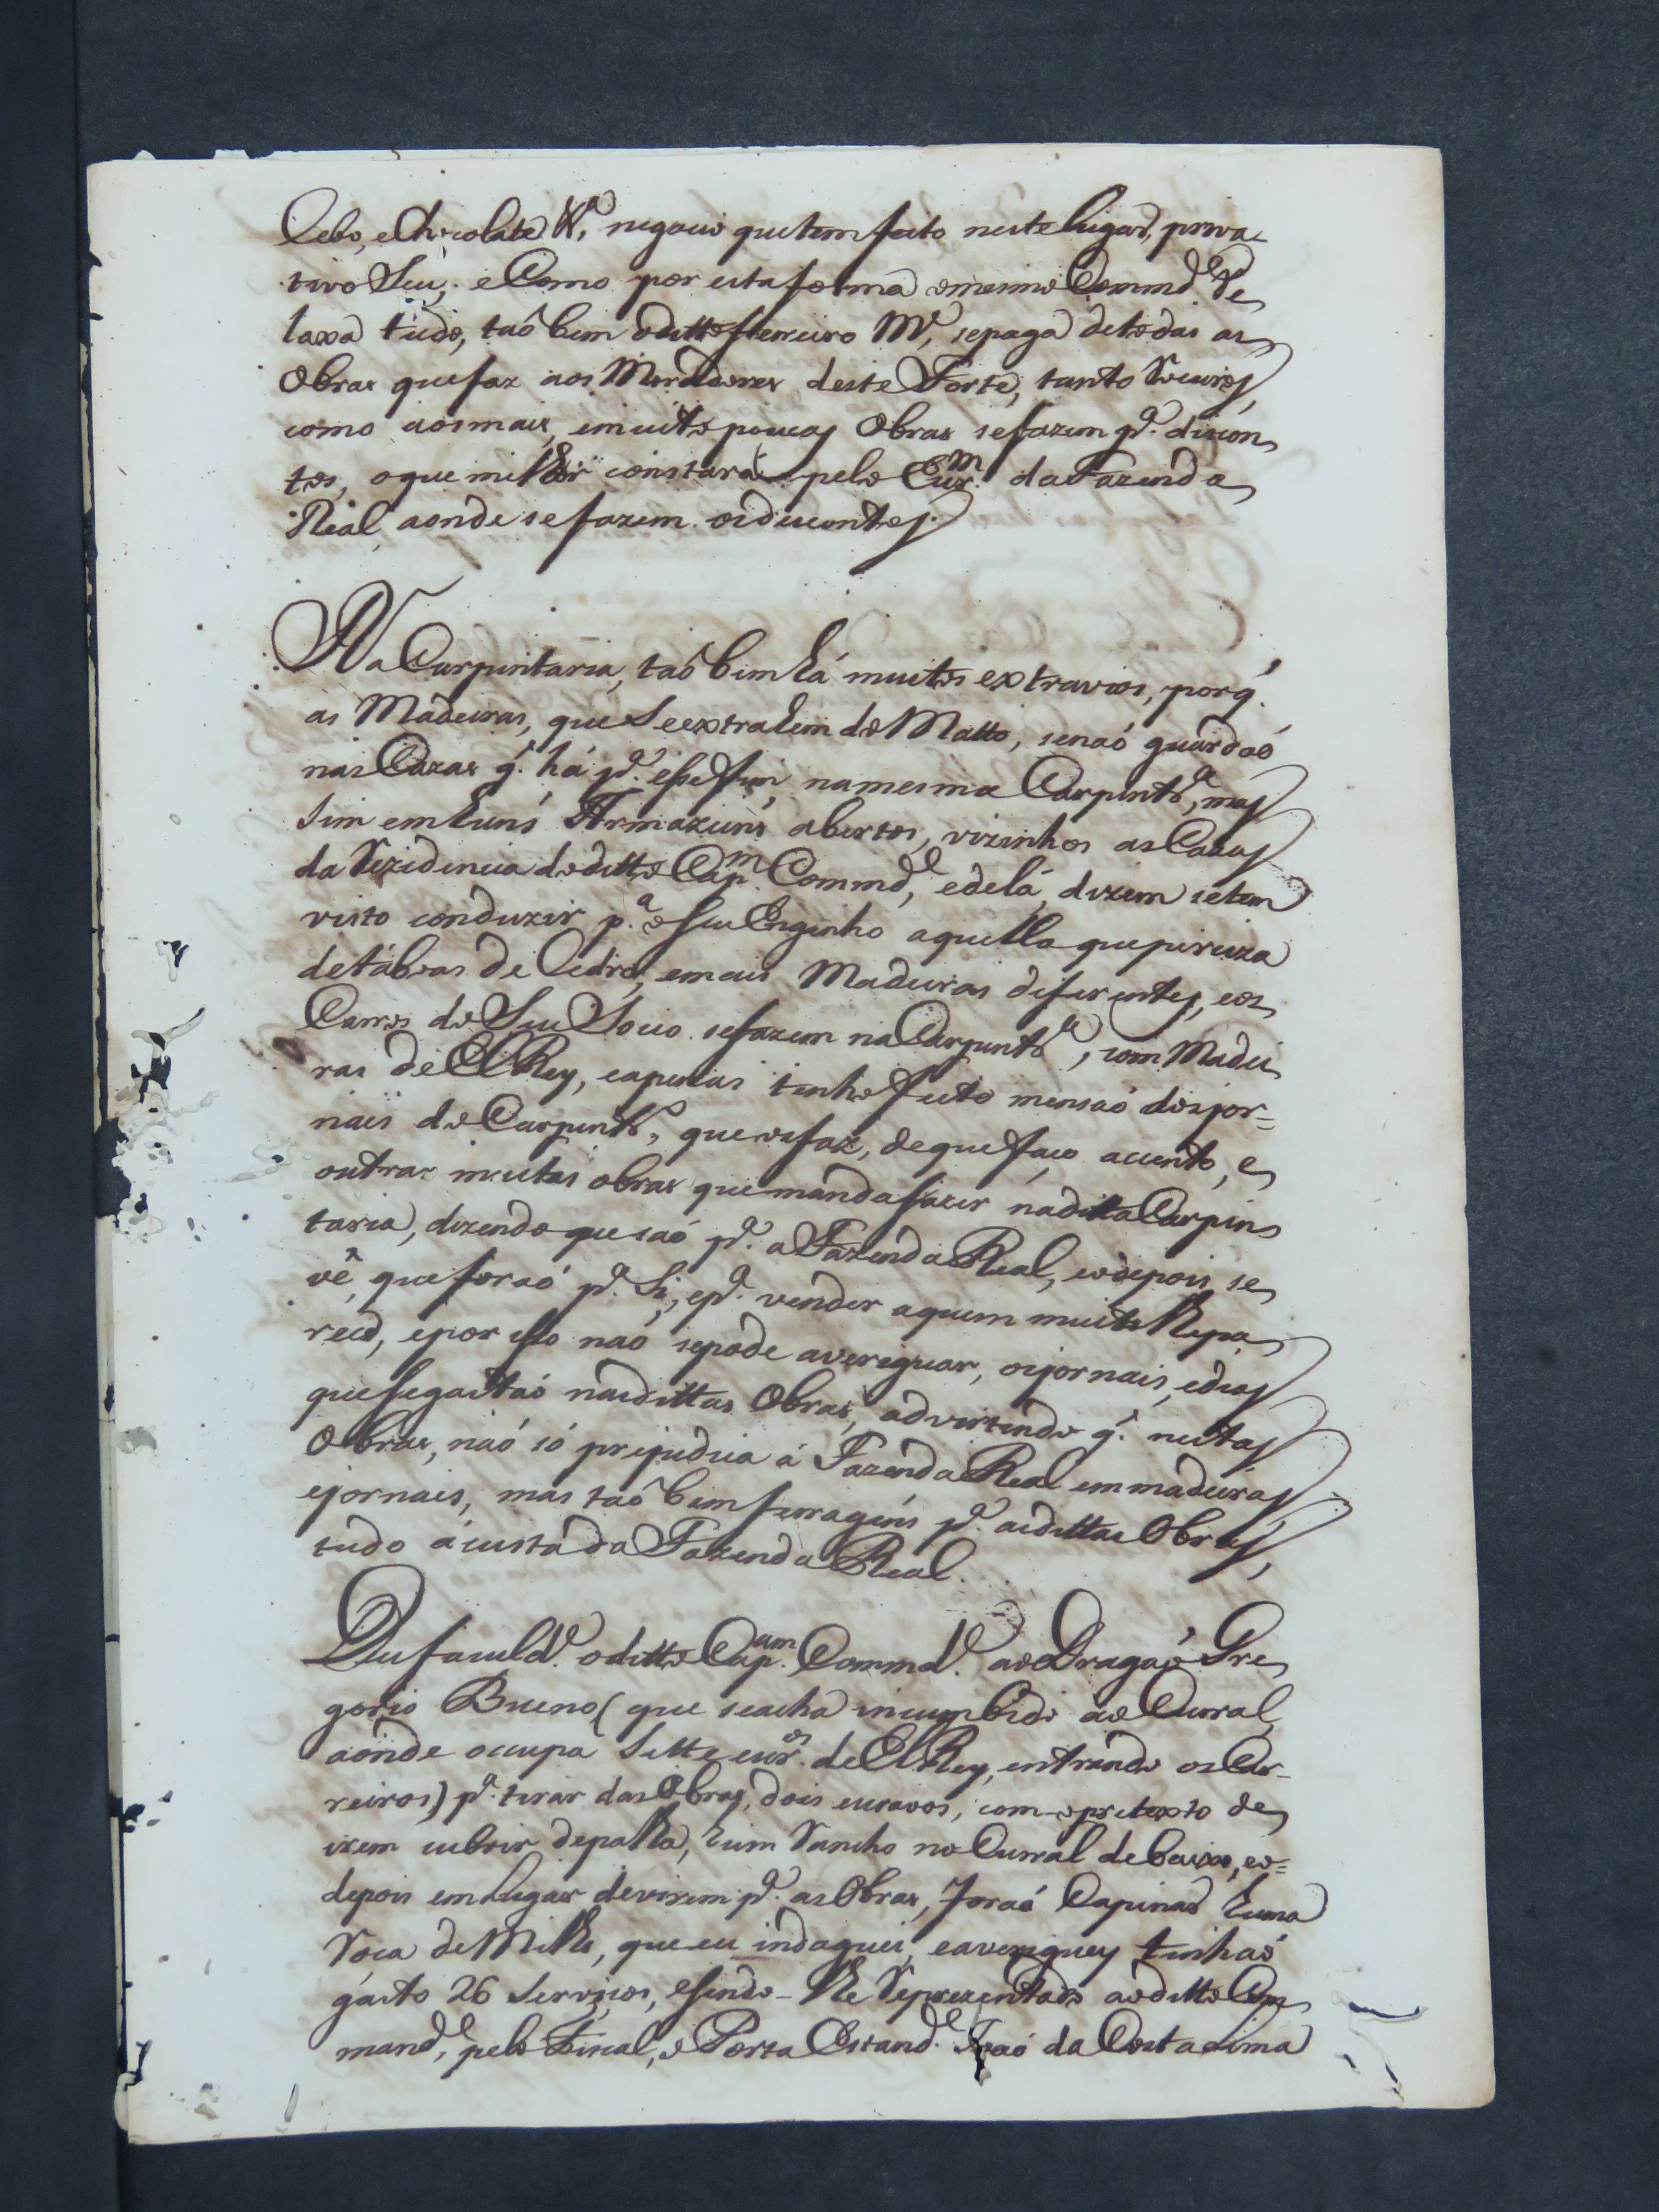 Cebo, e Chicolate &.ª negocio que tem feito neste Lugar, priva-
tivo Seu, e Como por esta forma o mesmo Commd.e Re
laxa tudo, taõ bem o ditto ferreiro M.e, se paga de todas as
Obras que faz aos Moradores deste Forte, tanto Socios,
como aos mais, e muito poucas Obras se fazem p.ª discon
tos, o que milhor constará pelo Escr.m da Fazenda
Real, aonde se fazem os discontos.
Na Carpintaria, taõ bem há muitos extravios, porq.
as Madeiras, que Se extrahem do Matto, se naõ guardaõ
nas Cazas q. há p.ª esse fim, na mesma Carpint.ª, mas
Sim em huns Armazens abertos, vizinhos as Cazas
da Rezidencia do ditto Cap.m Commd.e, e de lá, dizem se tem
visto conduzir p.ª o seu Engenho aquella que perciza
de taboas de Cedro, e mais Madeiras diferentes, e os
Carros do Seu Socio se fazem na Carpint.ª, com Madei
ras de ElRey, e apenas tenho feito mensaõ dos jor=
nais do Carpint.ro, que os faz, de que faço acento, e
outras muitas obras que manda fazer na ditta Carpin
taria, dizendo que saõ p.ª a Fazenda Real, e ao depois, se
vê, que foraõ p.ª Si, e p.ª vender a quem muito lhe pa
rece, e por isso naõ se pode averiguar, os jornais, e dias
que se gastaõ nas dittas Obras, advertindo q. nestas
Obras, naõ só prejudica á Fazenda Real em madeiras
e jornais, mas taõ bem ferragens p.ª as dittas Obras,
tudo á custa da Fazenda Real.
Deu faculd.e o ditto Cap.am Commd.e ao Dragaõ Gre
gorio Bueno (que se acha incumbido ao Curral,
aonde occupa Sette escr.os de ElRey, entrando os Car-
reiros) p.ª tirar das Obras, dois escravos, com o pretexto de
irem cubrir de palha, hum Rancho no Curral de baixo, e ao=
depois em Lugar de virem p.ª as Obras, foraõ Capinar huma
Roça de Milho, que eu indaguei, e averiguey tinhaõ
gasto 26 Serviços, e sendo-lhe Reprezentado ao ditto Com
mand.e, pelo Fiscal, o Porta Estand.e Joaõ da Costa Lima